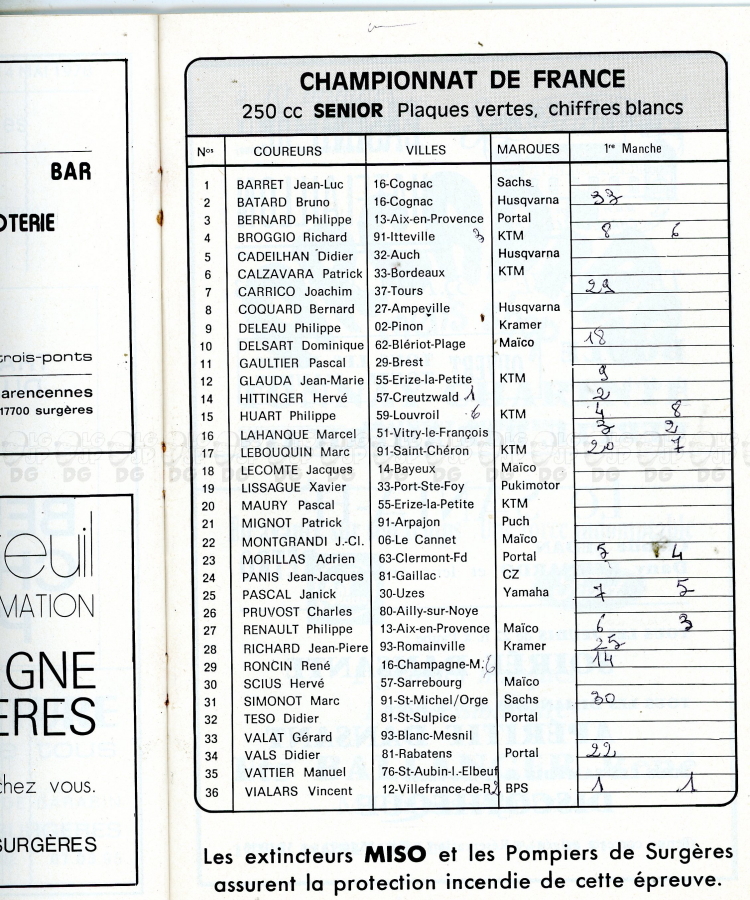 BAR
OTERIE
trois-ponts
arencennes
17700 surgères
euil
MATION
GNE
ERES
chez vous.
SURGÈRES
CHAMPIONNAT DE FRANCE
250 cc SENIOR Plaques vertes, chiffres blancs
Nos COUREURS VILLES MARQUES 1re Manche
1 BARRET Jean-Luc 16-Cognac Sachs
2 BATARD Bruno 16-Cognac Husqvarna 33
3 BERNARD Philippe 13-Aix-en-Provence Portal
4 BROGGIO Richard 91-Itteville 3 KTM 8 6
5 CADEILHAN Didier 32-Auch Husqvarna
6 CALZAVARA Patrick 33-Bordeaux KTM
7 CARRICO Joachim 37-Tours 29
8 COQUARD Bernard 27-Ampeville Husqvarna
9 DELEAU Philippe 02-Pinon Kramer
10 DELSART Dominique 62-Blériot-Plage Maïco 18
11 GAULTIER Pascal 29-Brest
12 GLAUDA Jean-Marie 55-Erize-la-Petite KTM 9
14 HITTINGER Hervé 57-Creutzwald 1 2
15 HUART Philippe 59-Louvroil 6 KTM 4 8
16 LAHANQUE Marcel 51-Vitry-le-François 3 2
17 LEBOUQUIN Marc 91-Saint-Chéron KTM 20 7
18 LECOMTE Jacques 14-Bayeux Maïco
19 LISSAGUE Xavier 33-Port-Ste-Foy Pukimotor
20 MAURY Pascal 55-Erize-la-Petite KTM
21 MIGNOT Patrick 91-Arpajon Puch
22 MONTGRANDI J.-Cl. 06-Le Cannet Maïco
23 MORILLAS Adrien 63-Clermont-Fd Portal 5 4
24 PANIS Jean-Jacques 81-Gaillac CZ
25 PASCAL Janick 30-Uzes Yamaha 7 5
26 PRUVOST Charles 80-Ailly-sur-Noye
27 RENAULT Philippe 13-Aix-en-Provence Maïco 6 3
28 RICHARD Jean-Piere 93-Romainville Kramer 25
29 RONCIN René 16-Champagne-M. 14
30 SCIUS Hervé 57-Sarrebourg Maïco
31 SIMONOT Marc 91-St-Michel/Orge Sachs 30
32 TESO Didier 81-St-Sulpice Portal
33 VALAT Gérard 93-Blanc-Mesnil
34 VALS Didier 81-Rabatens Portal 22
35 VATTIER Manuel 76-St-Aubin-l.-Elbeuf
36 VIALARS Vincent 12-Villefranche-de-R 2 BPS 1 1
Les extincteurs MISO et les Pompiers de Surgères
assurent la protection incendie de cette épreuve.